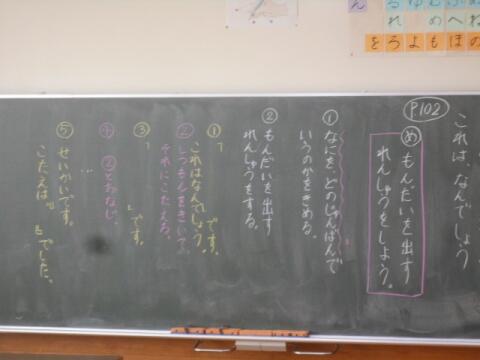 P102
これは、なんでしょう
め もんだいを出す
れんしゅうをしよう。
① なにを、どのじゅんばんで
いうのかをきめる。
② もんだいを出す
れんしゅうをする。
①「 です。
これはなんでしょう。」
② しつもんをきいて、
それにこたえる。
③「 です。
④ ②とおなじ。
…
⑤ せいかいです。
こたえは『 』でした。